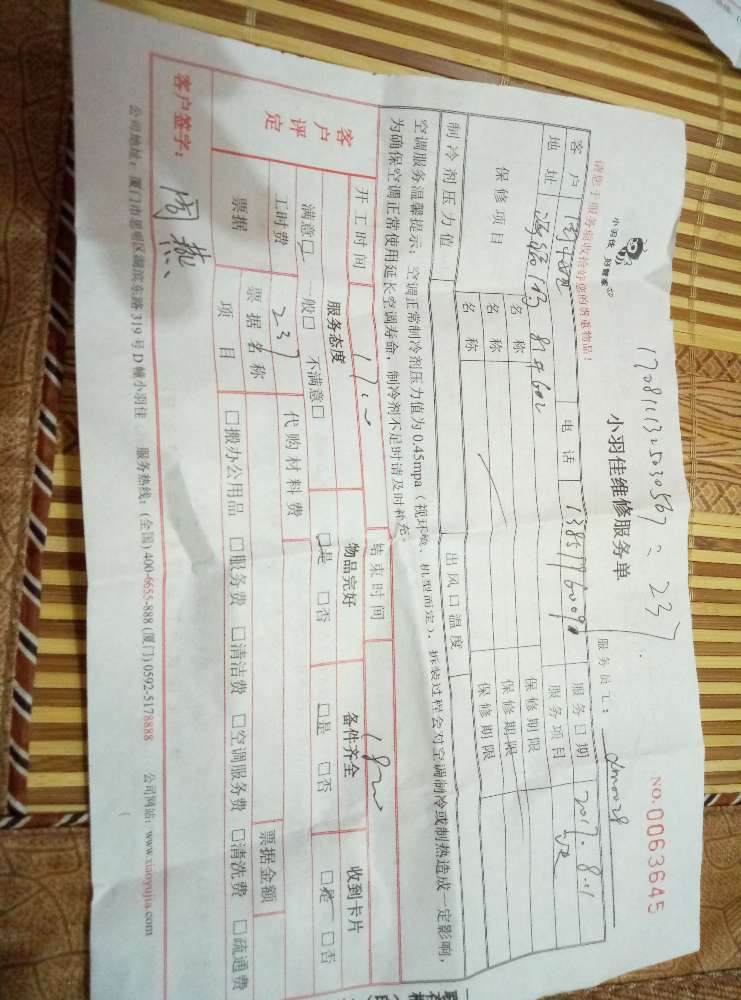 1708111325030567 : 237
小羽佳 好管家
小羽佳维修服务单
NO.0063645
请您于服务前收拾好您的贵重物品！
服务员工：
客户 电话 服务日期 2017.8.11
地址 服务项目
保修项目 名称 保修期限
名称 保修期限
名称 保修期限
制冷剂压力值 出风口温度
空调服务温馨提示：空调正常制冷剂压力值为0.45mpa（视环境、机型而定），拆装过程会对空调制冷或制热造成一定影响，
为确保空调正常使用延长空调寿命，制冷剂不足时请及时补充。
开工时间 结束时间
客户评定 服务态度 物品完好 备件齐全 收到卡片
满意□ 一般□ 不满意□ □是 □否 □是 □否 □是 □否
工时费 237 代购材料费
票据 票据名称 票据金额
项目 □搬办公用品 □服务费 □清洁费 □空调服务费 □清洗费 □疏通费
客户签字：
公司地址：厦门市思明区湖滨东路319号D幢小羽佳 服务热线：(全国) 400-6655-888 (厦门) 0592-5178888 公司网站：www.xiaoyujia.com